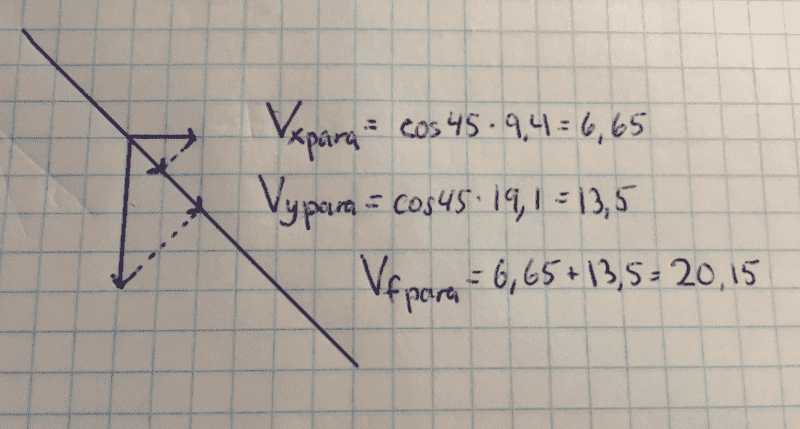 Vxpara = cos45 · 9,4 = 6,65
Vypara = cos45 · 19,1 = 13,5
Vfpara = 6,65 + 13,5 = 20,15